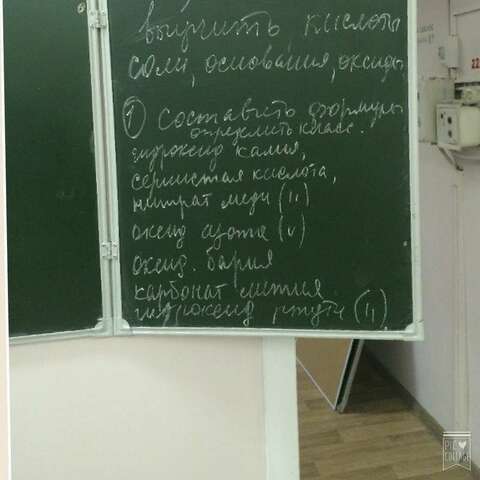 выучить, кислоты
соли, основания, оксиды
① составить формулы
определить класс.
гидроксид калия,
сернистая кислота,
нитрат меди (II)
оксид азота (V)
оксид. бария
карбонат лития
гидроксид ртути (II)
22
PIC♥
COLLAGE